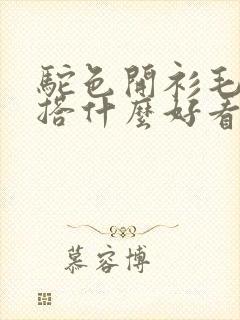 駝色開衫毛
搭什麼好看
慕容博